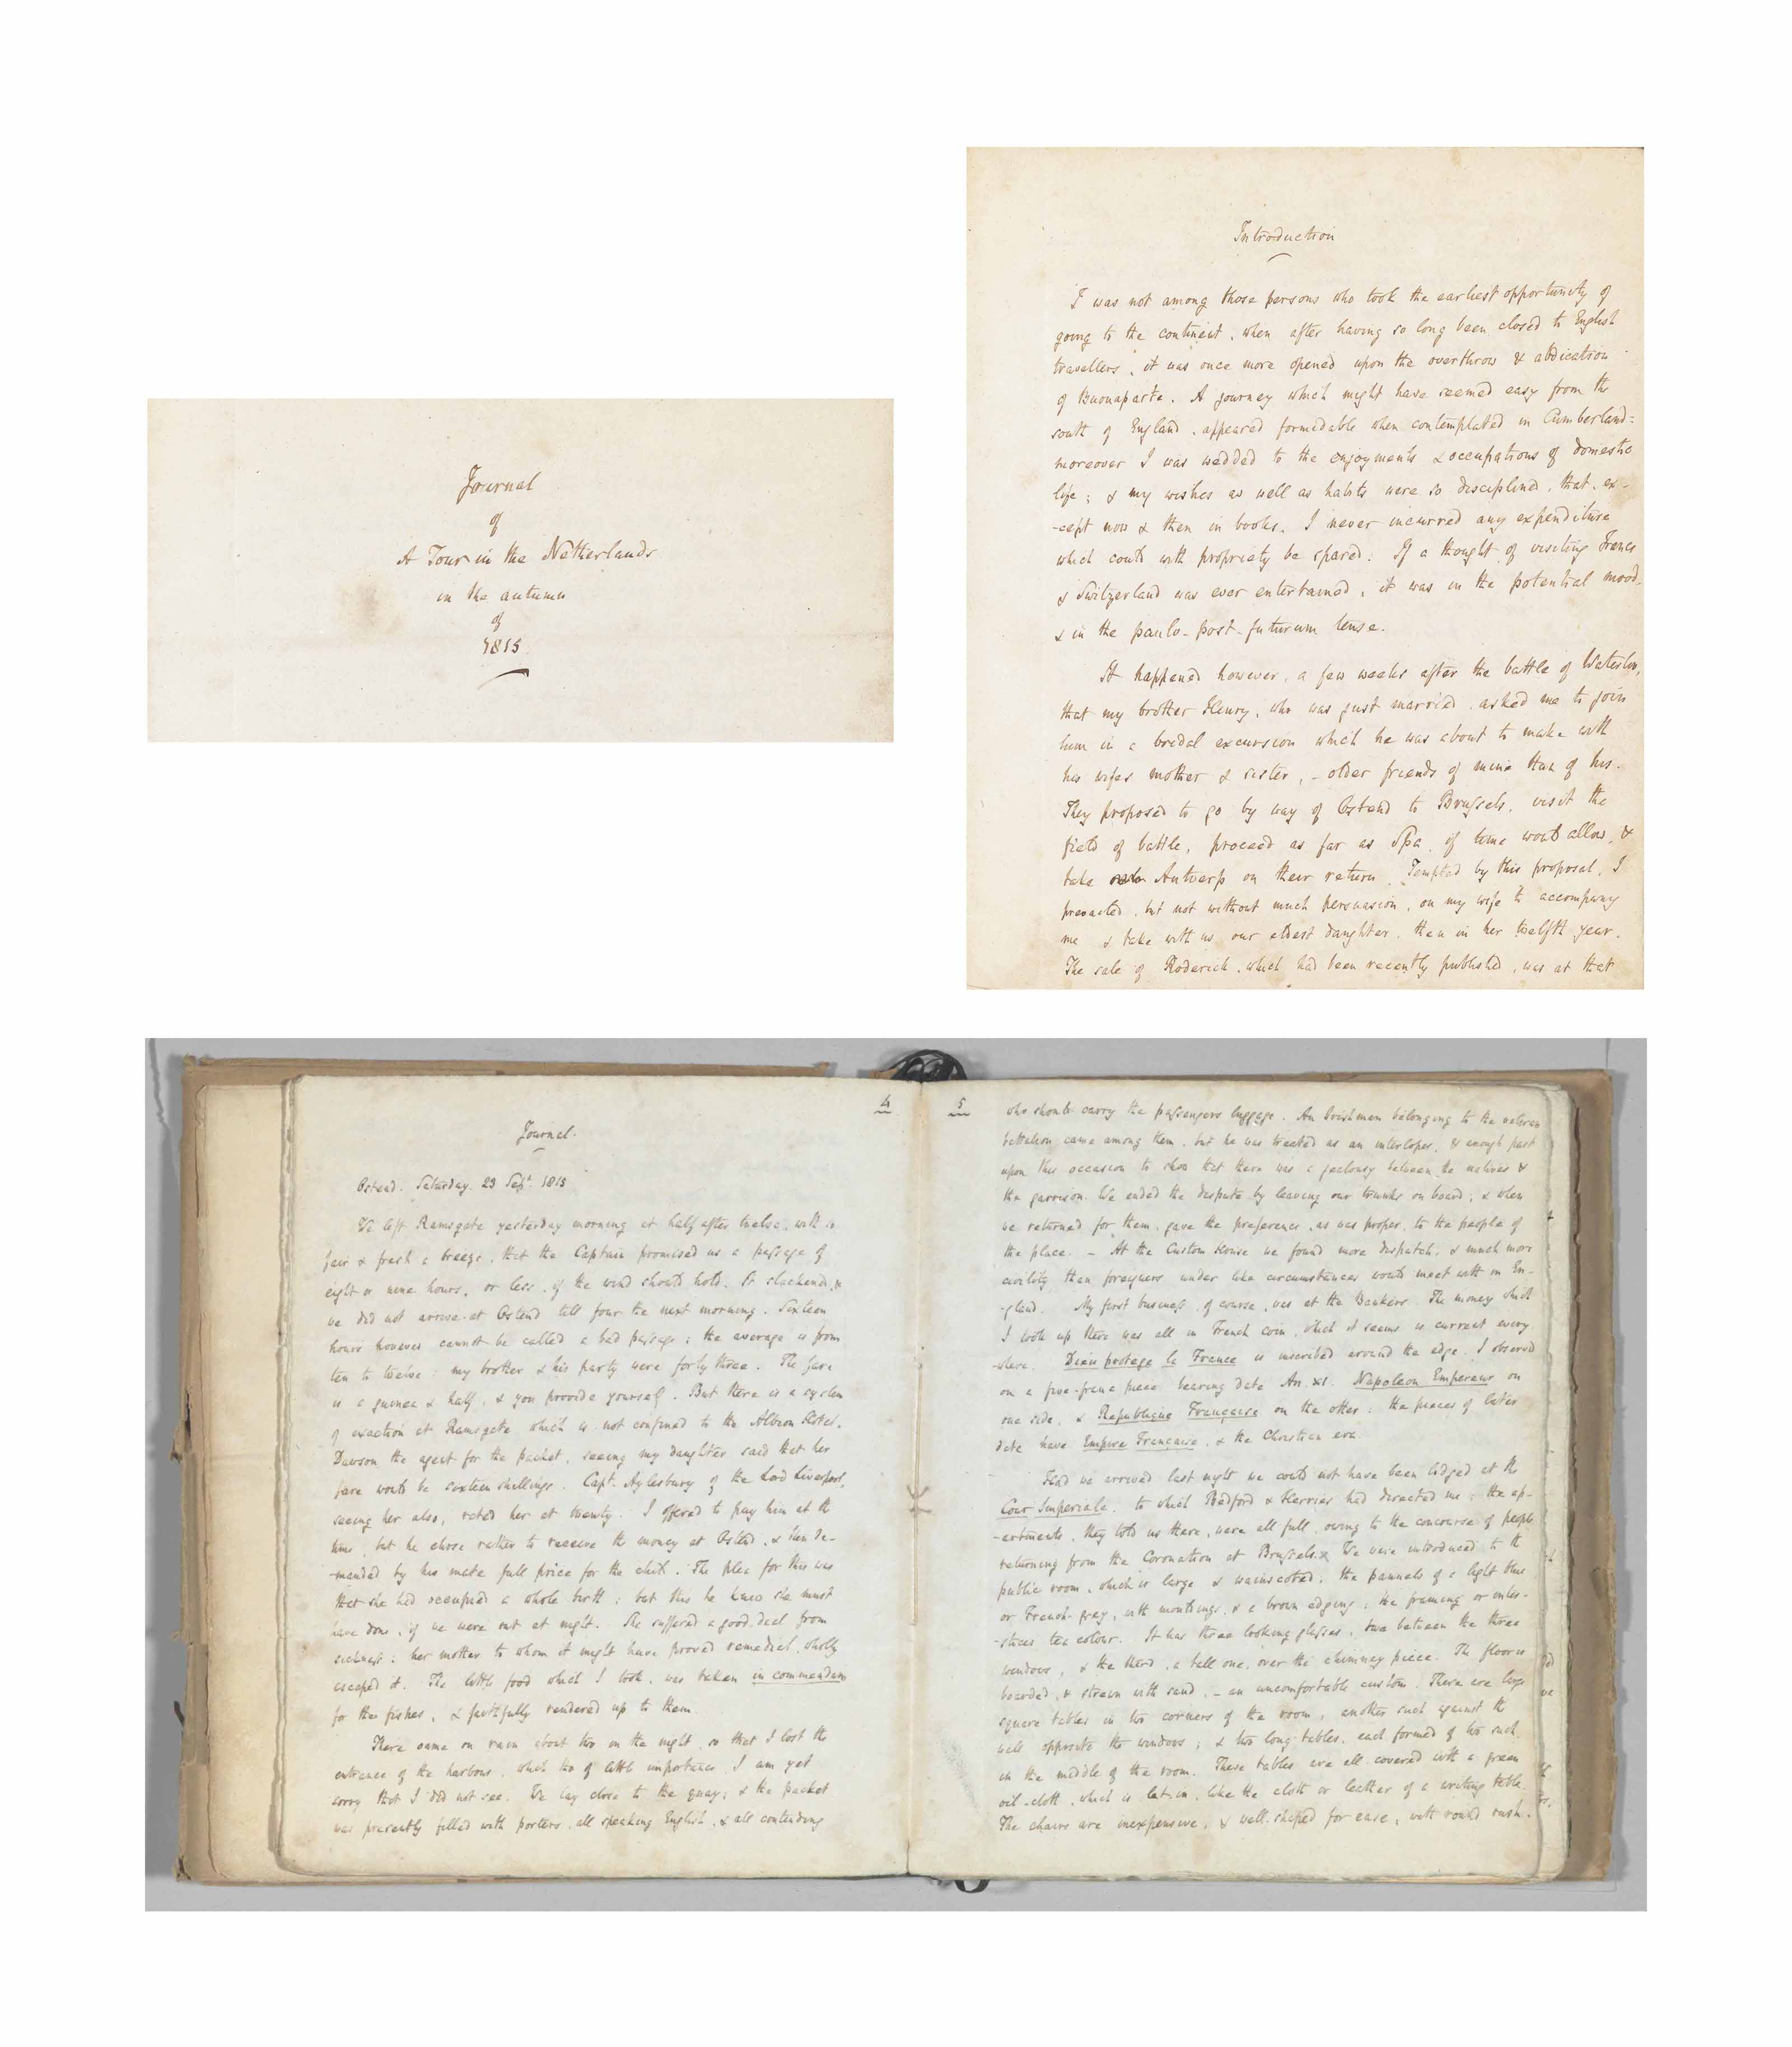 Journal
of
A Tour in the Netherlands
in the autumn
of
1815
Introduction
I was not among those persons who took the earliest opportunity of
going to the continent, when after having so long been closed to English
travellers, it was once more opened upon the overthrow & abdication
of Buonaparte. A journey which might have seemed easy from the
south of England, appeared formidable when contemplated in Cumberland:
moreover I was wedded to the enjoyments & occupations of domestic
life; & my wishes as well as habits were so disciplined, that, ex-
-cept now & then in books, I never incurred any expenditure
which could with propriety be spared. If a thought of visiting France
& Switzerland was ever entertained, it was in the potential mood,
& in the paulo-post-futurum tense.
It happened however, a few weeks after the battle of Waterloo,
that my brother Henry, who was just married, asked me to join
him in a bridal excursion which he was about to make with
his wifes mother & sister, - older friends of mine than of his.
They proposed to go by way of Ostend to Brussels, visit the
field of battle, proceed as far as Spa, if time would allow, &
take Antwerp on their return. Tempted by this proposal, I
prevailed, but not without much persuasion, on my wife to accompany
me & take with us our eldest daughter, then in her twelfth year.
The sale of Roderick, which had been recently published, was at that
4
Journal.
Ostend. Saturday. 23 Sept. 1815
We left Ramsgate yesterday morning at half after twelve, with so
fair & fresh a breeze, that the Captain promised us a passage of
eight or nine hours, or less, if the wind should hold. It slackened, &
we did not arrive at Ostend till four the next morning. Sixteen
hours however cannot be called a bad passage: the average is from
ten to twelve: my brother & his party were forty three. The fare
is a guinea & half, & you provide yourself. But there is a system
of exaction at Ramsgate which is not confined to the Albion Hotel.
Dawson the agent for the packet, seeing my daughter said that her
fare would be sixteen shillings. Capt. Aylesbury of the Lord Liverpool,
seeing her also, rated her at twenty. I offered to pay him at the
time, but he chose rather to receive the money at Ostend, & then de-
-manded by his mate full price for the child. The plea for this was
that she had occupied a whole birth; but this he knew she must
have done, if we were out at night. She suffered a good deal from
sickness: her mother to whom it might have proved remedial, wholly
escaped it. The little food which I took, was taken in commendam
for the fishes, & faithfully rendered up to them.
There came on rain about two in the night, so that I lost the
entrance of the harbour, which tho of little importance, I am yet
sorry that I did not see. We lay close to the quay; & the packet
was presently filled with porters, all speaking English, & all contending
5
who should carry the passengers luggage. An Irishman belonging to the veteran
battalion came among them, but he was treated as an interloper, & enough past
upon this occasion to show that there was a jealousy between the natives &
the garrison. We ended the dispute by leaving our trunks on board; & when
we returned for them, gave the preference, as was proper, to the people of
the place. - At the Custom House we found more dispatch, & much more
civility than foreigners under like circumstances would meet with in En-
-gland. My first business, of course, was at the Bankers. The money which
I took up there was all in French coin, which it seems is current every
-where. Dieu protege la France is inscribed around the edge. I observed
on a five-franc piece bearing date An. XI. Napoleon Empereur on
one side, & Republique Française on the other: the pieces of later
date have Empire Française, & the Christian era.
Had we arrived last night we could not have been lodged at the
Cour Imperiale, to which Bedford & Herries had directed me: the ap-
-artments, they told us there, were all full, owing to the concourse of people
returning from the Coronation at Brussels. We were introduced to the
public room, which is large & wainscoted, the pannels of a light blue
or French-gray, with mouldings, & a brown edging; the framing or inter-
-stices tea colour. It has three looking glasses, two between the three
windows, & the third, a tall one, over the chimney piece. The floor is
boarded, & strewn with sand, - an uncomfortable custom. There are large
square tables in two corners of the room, another such against the
wall opposite the windows; & two long tables, each formed of two such
in the middle of the room. These tables are all covered with a green
oil-cloth, which is let in, like the cloth or leather of a writing table.
The chairs are inexpensive, & well-shaped for ease, with round rush-